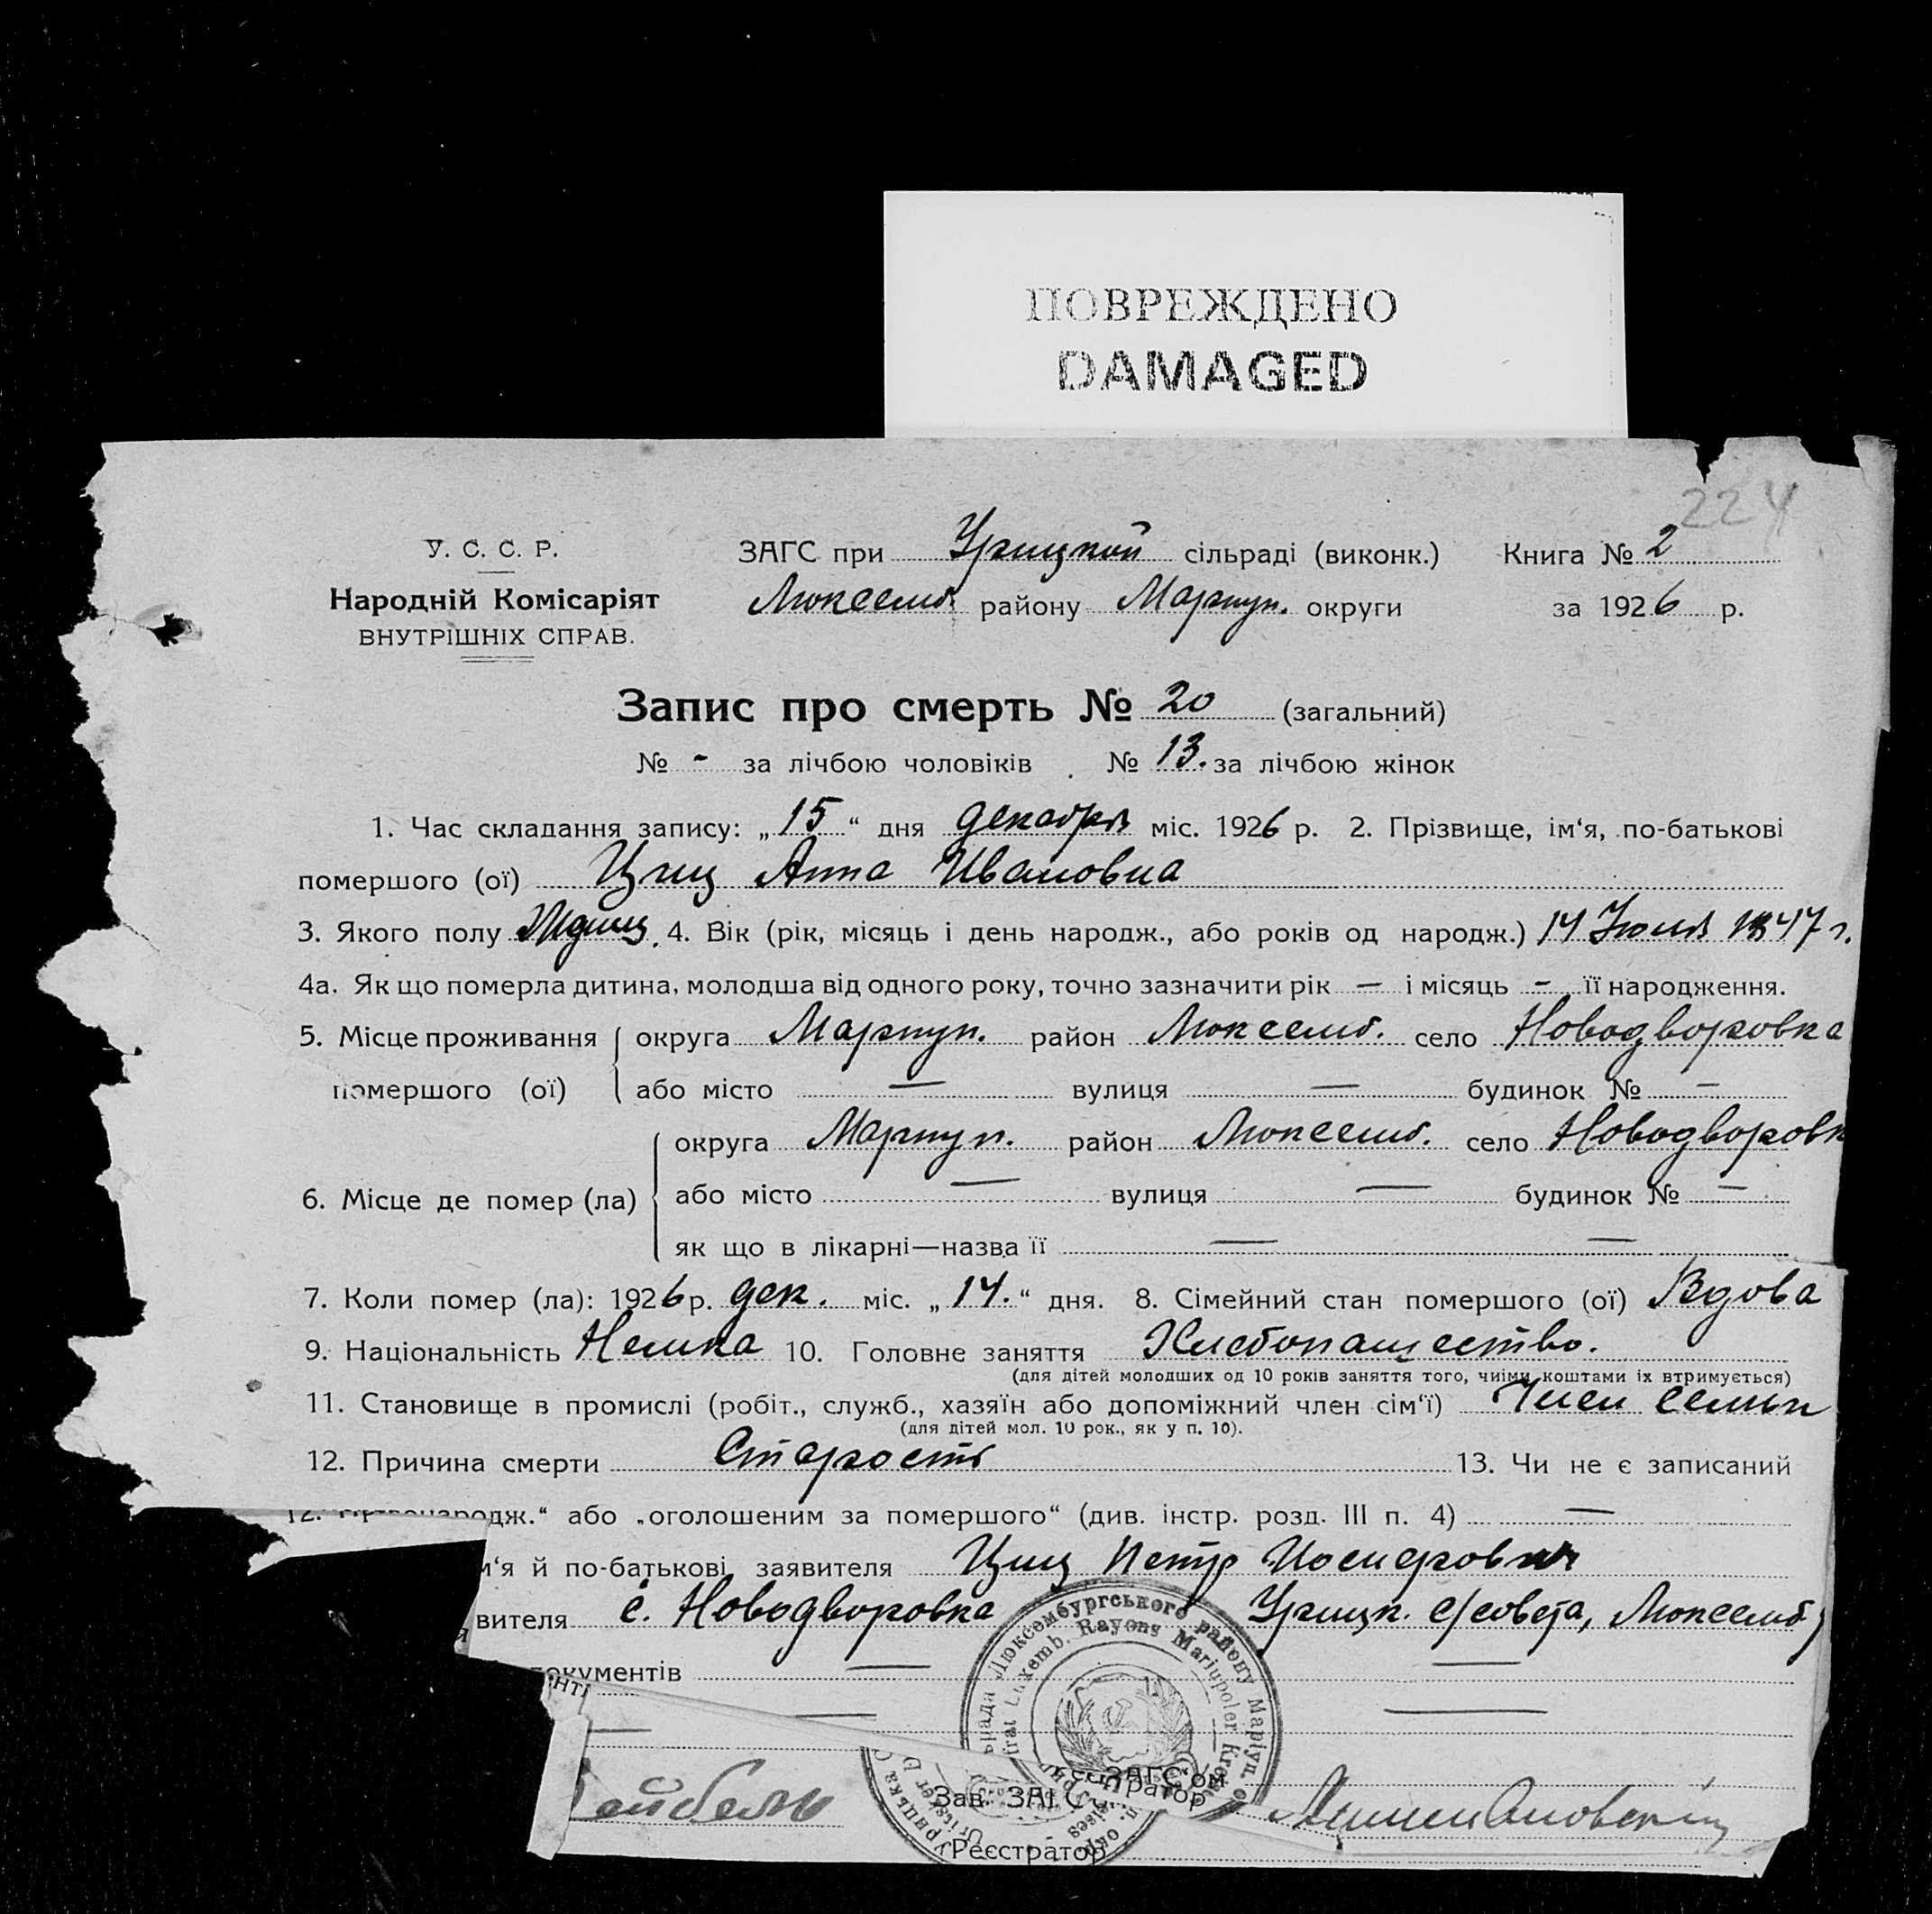 ПОВРЕЖДЕНО
DAMAGED
224
У. С. С. Р.
Народній Комісаріят
ВНУТРІШНІХ СПРАВ.
ЗАГС при Урицкой сільраді (виконк.) Книга № 2
Люксемб. району Мариуп. округи за 1926 р.
Запис про смерть № 20 (загальний)
№ - за лічбою чоловіків . № 13. за лічбою жінок
1. Час складання запису: „15“ дня декабря міс. 1926 р. 2. Прізвище, ім‘я, по-батькові
помершого (ої) Циц Анна Ивановна
3. Якого полу 4. Вік (рік, місяць і день народж., або років од народж.) 14 Июля 1847 г.
4а. Як що померла дитина, молодша від одного року, точно зазначити рік — і місяць - її народження.
5. Місце проживання округа Мариуп. район Люксемб. село Новодворовка
помершого (ої) або місто — вулиця — будинок № —
округа Мариуп. район Люксемб. село Новодворовк
6. Місце де помер (ла) або місто — вулиця — будинок № —
як що в лікарні—назва її — —
7. Коли помер (ла): 1926 р. дек. міс. „14.“ дня. 8. Сімейний стан помершого (ої) Вдова
9. Національність Немка 10. Головне заняття Хлебопашество.
(для дітей молодших од 10 років заняття того, чиїми коштами їх втримується)
11. Становище в промислі (робіт., служб., хазяїн або допоміжний член сім‘ї) Член семьи
(для дітей мол. 10 рок., як у п. 10).
12. Причина смерти Старость 13. Чи не є записаний
родж.“ або „оголошеним за помершого“ (див. інстр. розд. III п. 4) —
м‘я й по-батькові заявителя Циц Петр Иосифович
вителя с. Новодворовка Урицк. с/совета, Люксемб
документів — —
— — —
Зав. ЗАГС‘ом
Реєстратор
Люксембургського району Маріуп.
Luxemb. Rayons Mariupoler Kreises